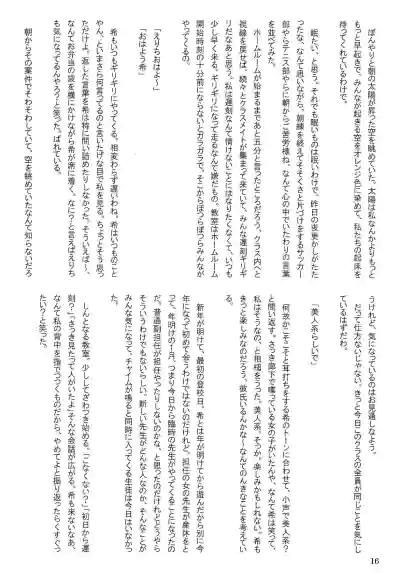 ぼんやりと朝の太陽が昇った空を眺めていた。太陽は私なんかよりもっと
もっと早起きで、みんなが起きる空をオレンジ色に染めて、私たちの起床を
待ってくれているわけで。
眠たい、と思う。それでも眠いものは眠いわけで、昨日の夜更かしがたた
ったな、なんて思いながら、朝練を終えてそそくさと片づけをするサッカー
部やらテニス部やらに朝からご苦労様ね、なんて心の中でいたわりの言葉
を並べてみた。
ホームルームが始まるまであと五分と言ったところだろうか。クラス内へと
視線を戻せば、続々とクラスメイトが集まって来ていて、みんな遅刻ギリギ
リだなあと思う。私は遅刻なんて情けないことにはなりたくなくて、いつも
少し早く来る。ギリギリになって走るなんて嫌だもの。教室はホームルーム
開始時刻の十分前にならないとガラガラで、そこからぽつらぽつらみんなが
やってくるの。
「えりちおはよ～」
「おはよう希」
希もいつもギリギリにやってくる。相変わらず遅いわね。希はいつものこと
やん、といまさら何言ってるのと言いたげな目で私を見る。ちょっとそう思っ
ただけよ。返した言葉を希は特に問い詰めたりしなかった。そういえば～、
なんてお弁当の袋を横にかけながら希が席に着く。なに？と言えばえりち
も気になってるんやろうと笑った。ばれている。
朝からその案件でそわそわしていて、空を眺めていたなんて知らないだろ
うけれど、気になっているのはお見通しなよう。
だって仕方ないじゃない。きっと今日このクラスの全員が同じことを気にし
ているはずだわ。
「美人系らしいで」
何故かこそこそと耳打ちをする希のトーンに合わせて、小声で美人系？
と問い返す。さっき廊下で喋っている女の子がいたんや、なんて希は笑って、
私はそうなの、と相槌をうった。美人系、そっか。楽しみかもしれない。希も
きっと楽しみなのだろう。彼氏いるんかな～なんてのんきなことを考えてい
る。
新年が明けて、最初の登校日。希とは年が明けてから遊んだから別に今
年になって初めて会うわけではないのだけれど。担任の女の先生が産休をと
って、年明けの一月、つまり今日から臨時の先生がやってくることになったの
だ。普通副担任が担任やったりしないのかな、と思ったのだけれどどうやら
そういうわけでもないらしい。新しい先生がどんな人なのか、そんなことが
みんな気になって、チャイムが鳴ると同時に入ってくる生徒は今日はいなかっ
た。
しんとなる教室。少ししてざわつき始める。「こなくない？」「初日から遅
刻？」「さっき見たって人がいたよ」そんな会話が広がる。希も来ないなあ、
なんて私の背中を指でつつくものだから、やめてよと振り返ったらくすぐっ
たい？と笑った。
16